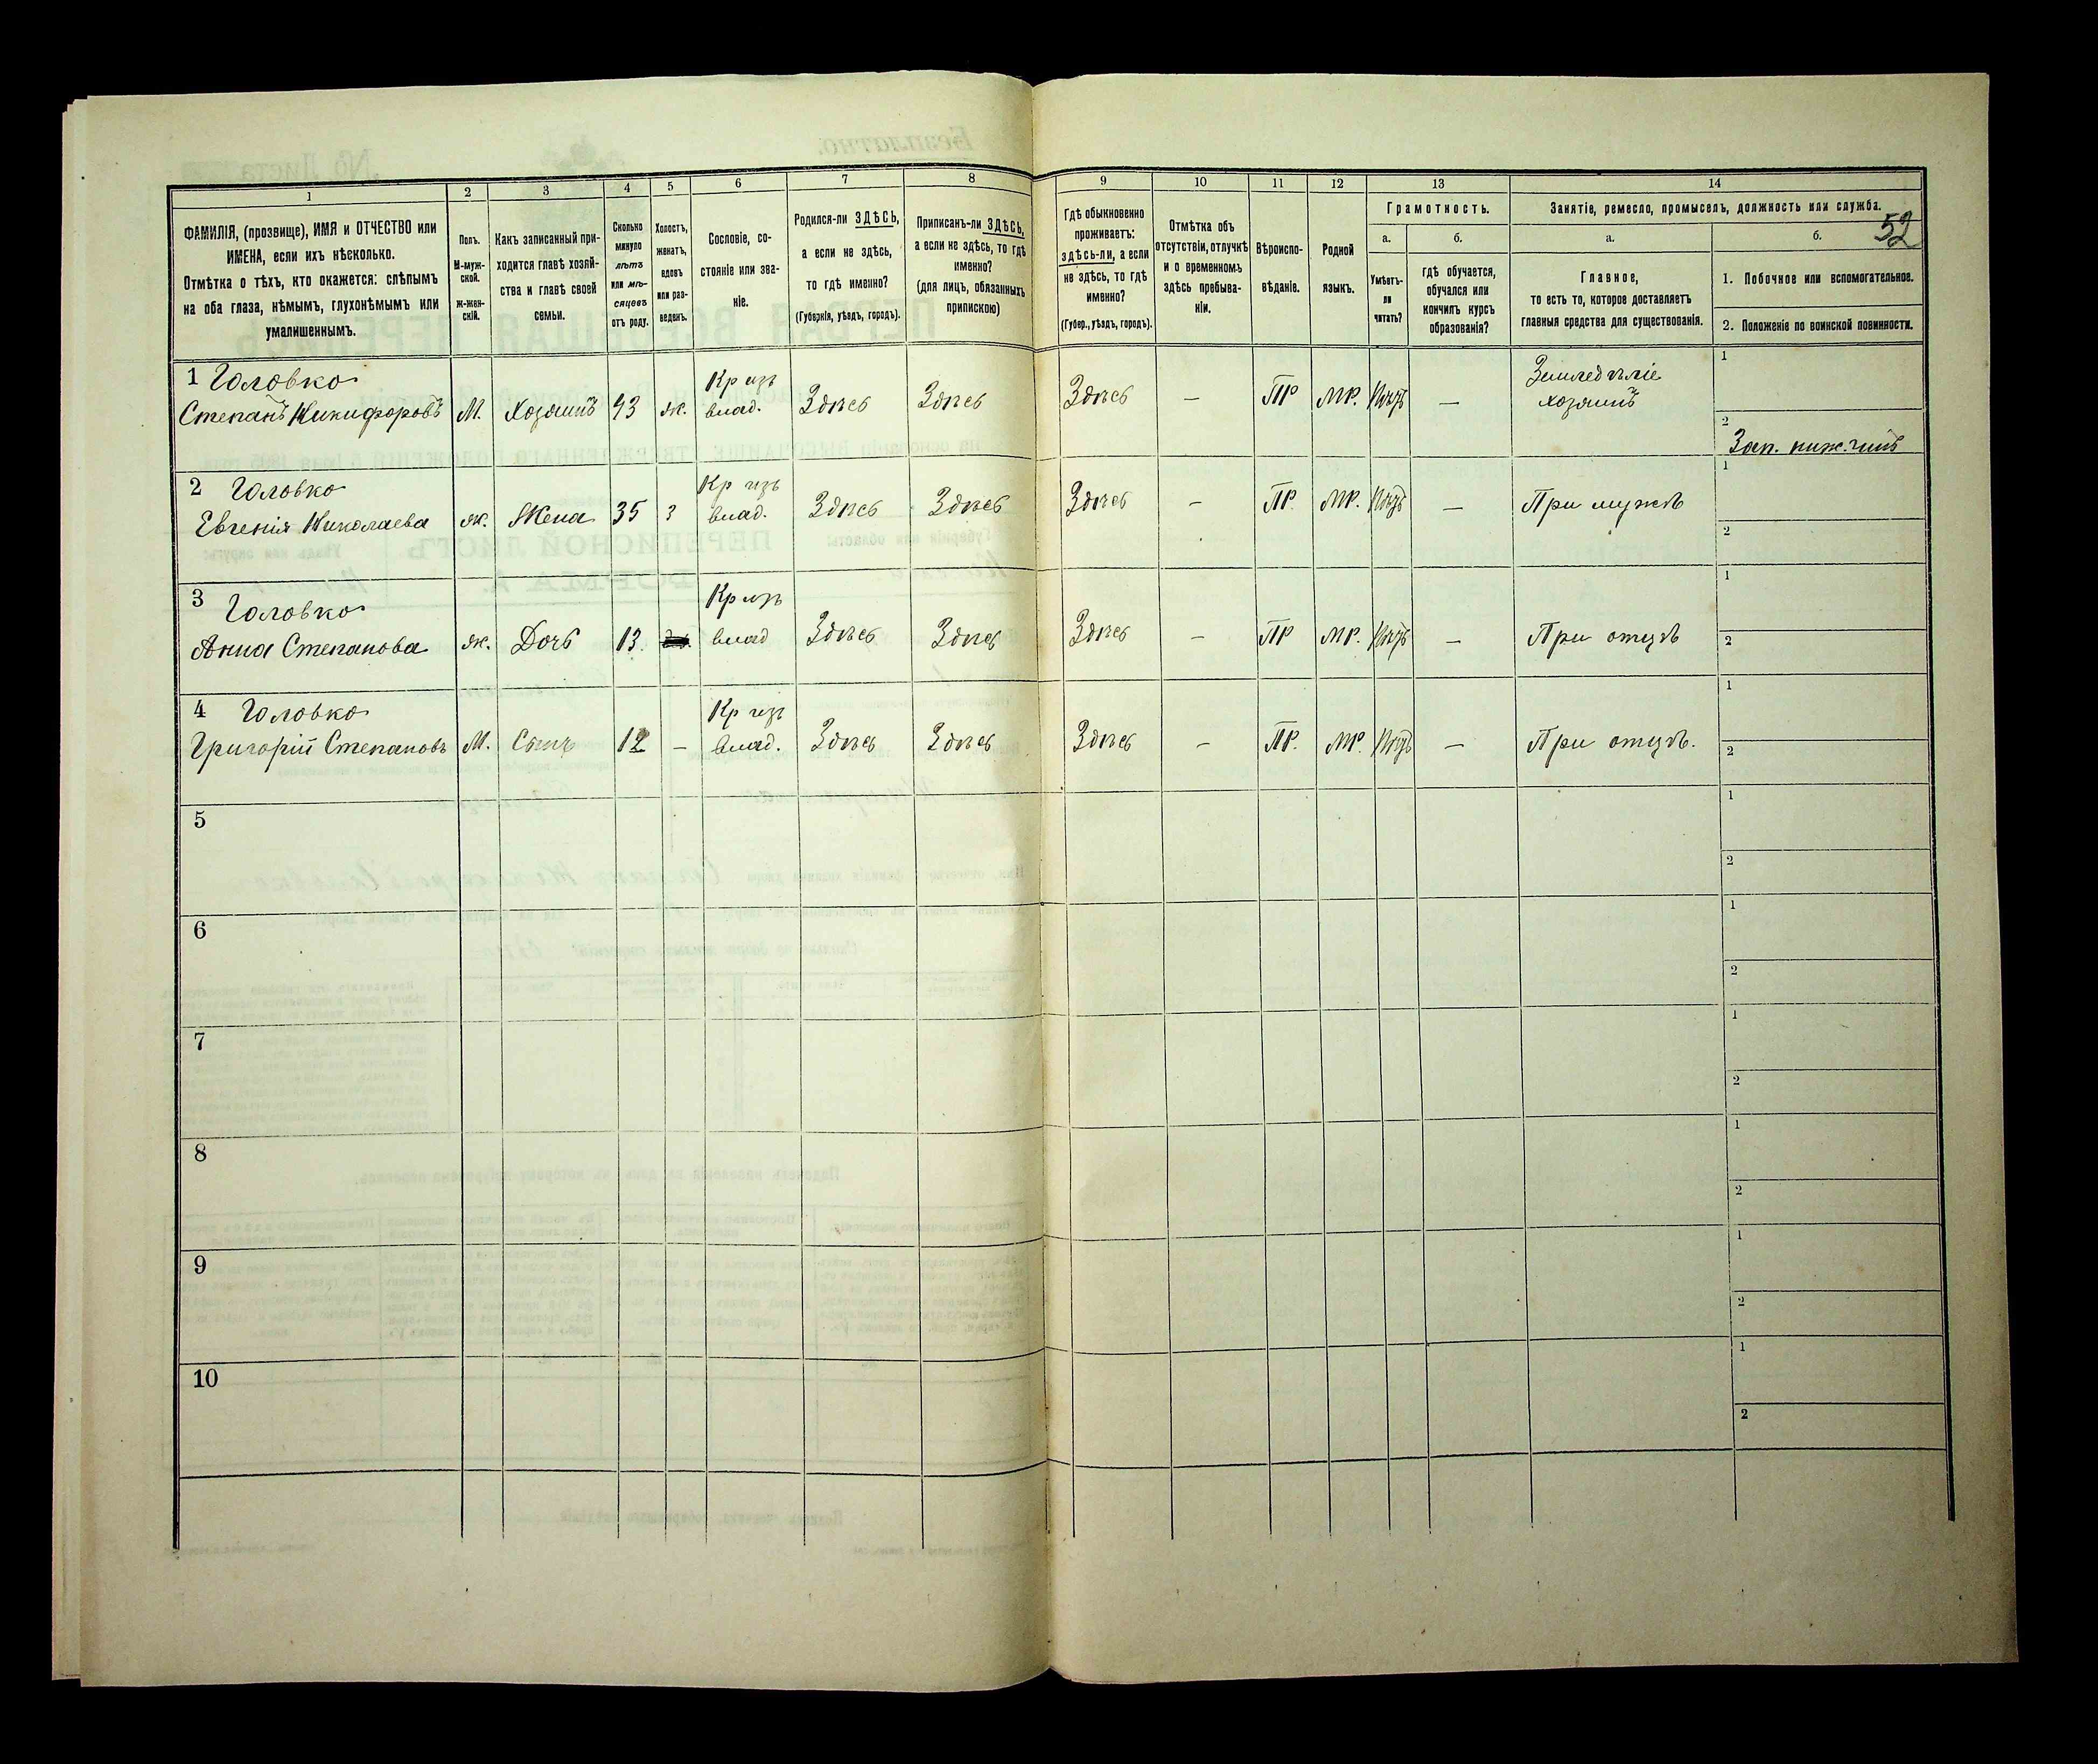 52
1 2 3 4 5 6 7 8 9 10 11 12 13 14
ФАМИЛІЯ, (прозвище), ИМЯ и ОТЧЕСТВО или
ИМЕНА, если ихъ нѣсколько.
Отмѣтка о тѣхъ, кто окажется: слѣпымъ
на оба глаза, нѣмымъ, глухонѣмымъ или
умалишеннымъ.
Полъ.
М-муж-
ской.
Ж-жен-
скій.
Какъ записанный при-
ходится главѣ хозяй-
ства и главѣ своей
семьи.
Сколько
минуло
лѣтъ
или мѣ-
сяцевъ
отъ роду.
Холостъ,
женатъ,
вдовъ
или раз-
веденъ.
Сословіе, со-
стояніе или зва-
ніе.
Родился-ли ЗДѢСЬ,
а если не здѣсь,
то гдѣ именно?
(Губернія, уѣздъ, городъ).
Приписанъ-ли ЗДѢСЬ,
а если не здѣсь, то гдѣ
именно?
(для лицъ, обязанныхъ
припискою)
Гдѣ обыкновенно
проживаетъ:
здѣсь-ли, а если
не здѣсь, то гдѣ
именно?
(Губер., уѣздъ, городъ).
Отмѣтка объ
отсутствіи, отлучкѣ
и о временномъ
здѣсь пребыва-
ніи.
Вѣроиспо-
вѣданіе.
Родной
языкъ.
Грамотность.
а.
Умѣетъ-
ли
читать?
б.
гдѣ обучается,
обучался или
кончилъ курсъ
образованія?
Занятіе, ремесло, промыселъ, должность или служба.
а.
Главное,
то есть то, которое доставляетъ
главныя средства для существованія.
б.
1. Побочное или вспомогательное.
2. Положеніе по воинской повинности.
1 Головко Кр изъ Земледѣліе 1
Степанъ Никифоровъ М. Хозяинъ 43 ж. влад. Здѣсь Здѣсь Здѣсь — ПР МР. — хозяинъ
2 Зап. ниж. чинъ
2 Головко Кр изъ 1
Евгенія Николаева ж. Жена 35 З влад. Здѣсь Здѣсь Здѣсь — ПР. МР. — При мужѣ
2
3 Головко Кр изъ 1
Анна Степанова ж. Дочь 13 влад Здѣсь Здѣсь Здѣсь — ПР МР. — При отцѣ 2
4 Головко Кр изъ 1
Григорій Степановъ М. Сынъ 12 — влад. Здѣсь Здѣсь Здѣсь — ПР. МР. — При отцѣ. 2
5 1
2
6 1
2
7 1
2
8 1
2
9 1
2
10 1
2